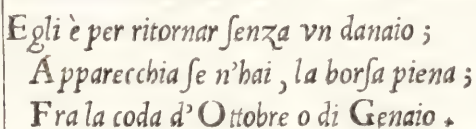 Egli è per ritornar ſenza vn danaio ;
Apparecchia ſe n'hai , la borſa piena ;
Fra la coda d'Ottobre o di Genaio .